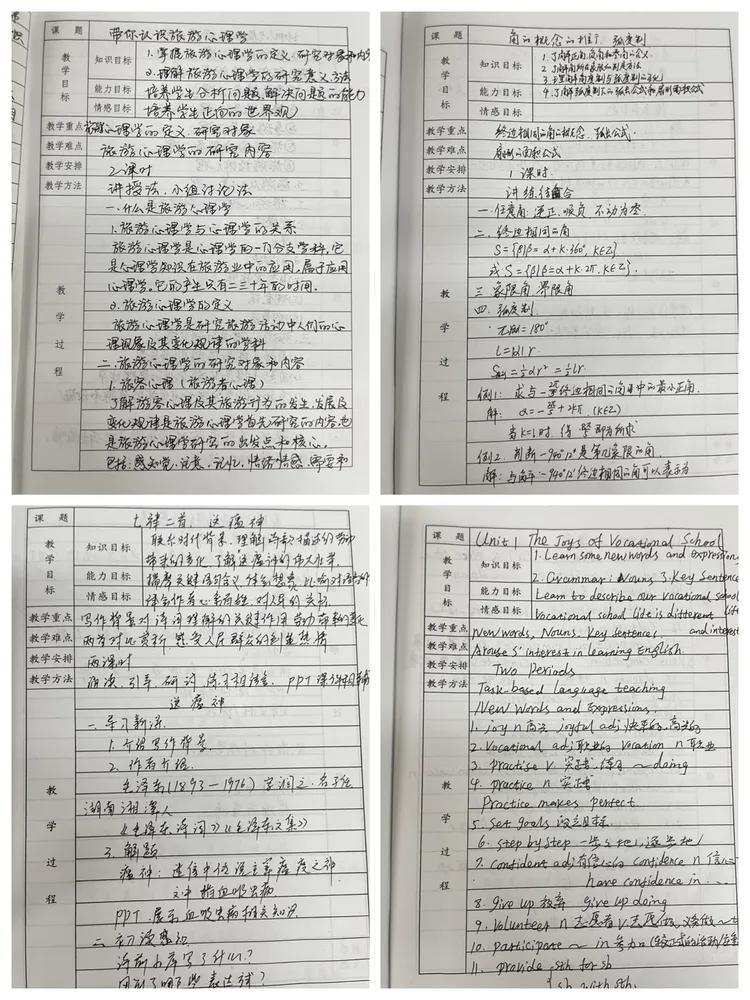 课 题 带你认识旅游心理学
教学目标
知识目标 1.掌握旅游心理学的定义、研究对象和内容
2.理解旅游心理学的研究意义方法
能力目标 培养学生分析问题、解决问题的能力
情感目标 培养学生正向的世界观
教学重点 旅游心理学的定义、研究对象
教学难点 旅游心理学的研究内容
教学安排 2课时
教学方法 讲授法、小组讨论法
教学过程
一、什么是旅游心理学
1.旅游心理学与心理学的关系
旅游心理学是心理学的一门分支学科,它
是心理学知识在旅游业中的应用,属于应用
心理学。它的产生只有二三十年的时间。
2.旅游心理学的定义
旅游心理学是研究旅游活动中人们的心
理现象及其变化规律的学科
二、旅游心理学的研究对象和内容
1.旅客心理(旅游者心理)
了解游客心理及其旅游行为的发生、发展及
变化规律是旅游心理学首先研究的内容,也
是旅游心理学研究的出发点和核心。
包括:感知觉、注意、记忆、情绪情感、需要和
课 题 角的概念的推广 弧度制
教学目标
知识目标 1.了解正角、负角和零角的含义
2.了解角所在象限的判定方法
3.理解角度制与弧度制的转化
能力目标 4.了解弧度制下的弧长公式和扇形面积公式
情感目标
教学重点 终边相同的角的概念、弧长公式
教学难点 扇形面积公式
教学安排 1课时
教学方法 讲练结合
教学过程
一.任意角:逆正、顺负、不动为零.
二.终边相同的角
S={β|β=α+k·360°, k∈Z}
或S={β|β=α+k·2π, k∈Z}.
三.象限角、界限角
四.弧度制
πrad=180°
L=|α|r
S扇=½αr²=½Lr.
例1:求与 终边相同的角中的最小正角.
解:
当k=1时,
例2.判断-940°12′是第几象限的角.
解:与角-940°12′终边相同的角可以表示为
课 题 七律二首 送瘟神
教学目标
知识目标 联系时代背景,理解
能力目标
情感目标
教学重点 写作背景对诗词理解的关键作用
教学难点 两首对比赏析,
教学安排 两课时
教学方法 PPT
送瘟神
教学过程
一、导入新课
1.介绍写作背景
2.作者介绍
毛泽东(1893-1976)字润之,
湖南湘潭人
《毛泽东诗词》《毛泽东文集》
3.解题
瘟神:迷信中传说主宰瘟疫之神
文中指血吸虫病
PPT展示血吸虫病相关知识
二、初读感知
诗前小序写了什么?
课 题 Unit 1 The Joys of Vocational School
教学目标
知识目标 1. Learn some new words and expression
2. Grammar: Nouns 3. Key Sentence
能力目标 Learn to describe our vocational school
情感目标 Vocational school life is different
教学重点 New words, Nouns, Key sentences and interest
教学难点 Arouse S' interest in learning English.
教学安排 Two Periods
教学方法 Task-based language teaching
教学过程
New words and Expressions.
1. joy n 高兴 joyful adj 快乐的,高兴的
2. Vocational adj 职业的 vocation n 职业
3. practise v. 实践,练习 ~ doing
4. practice n 实践
Practice makes perfect
5. set goals 设立目标
6. step by step 一步步地,逐步地
7. confident adj 有信心的 confidence n 信心
have confidence in ...
8. give up 放弃 give up doing
9. volunteer n 志愿者 v 志愿做,义务做
10. participate ~ in 参加
11. provide sth for sb
sb with sth.